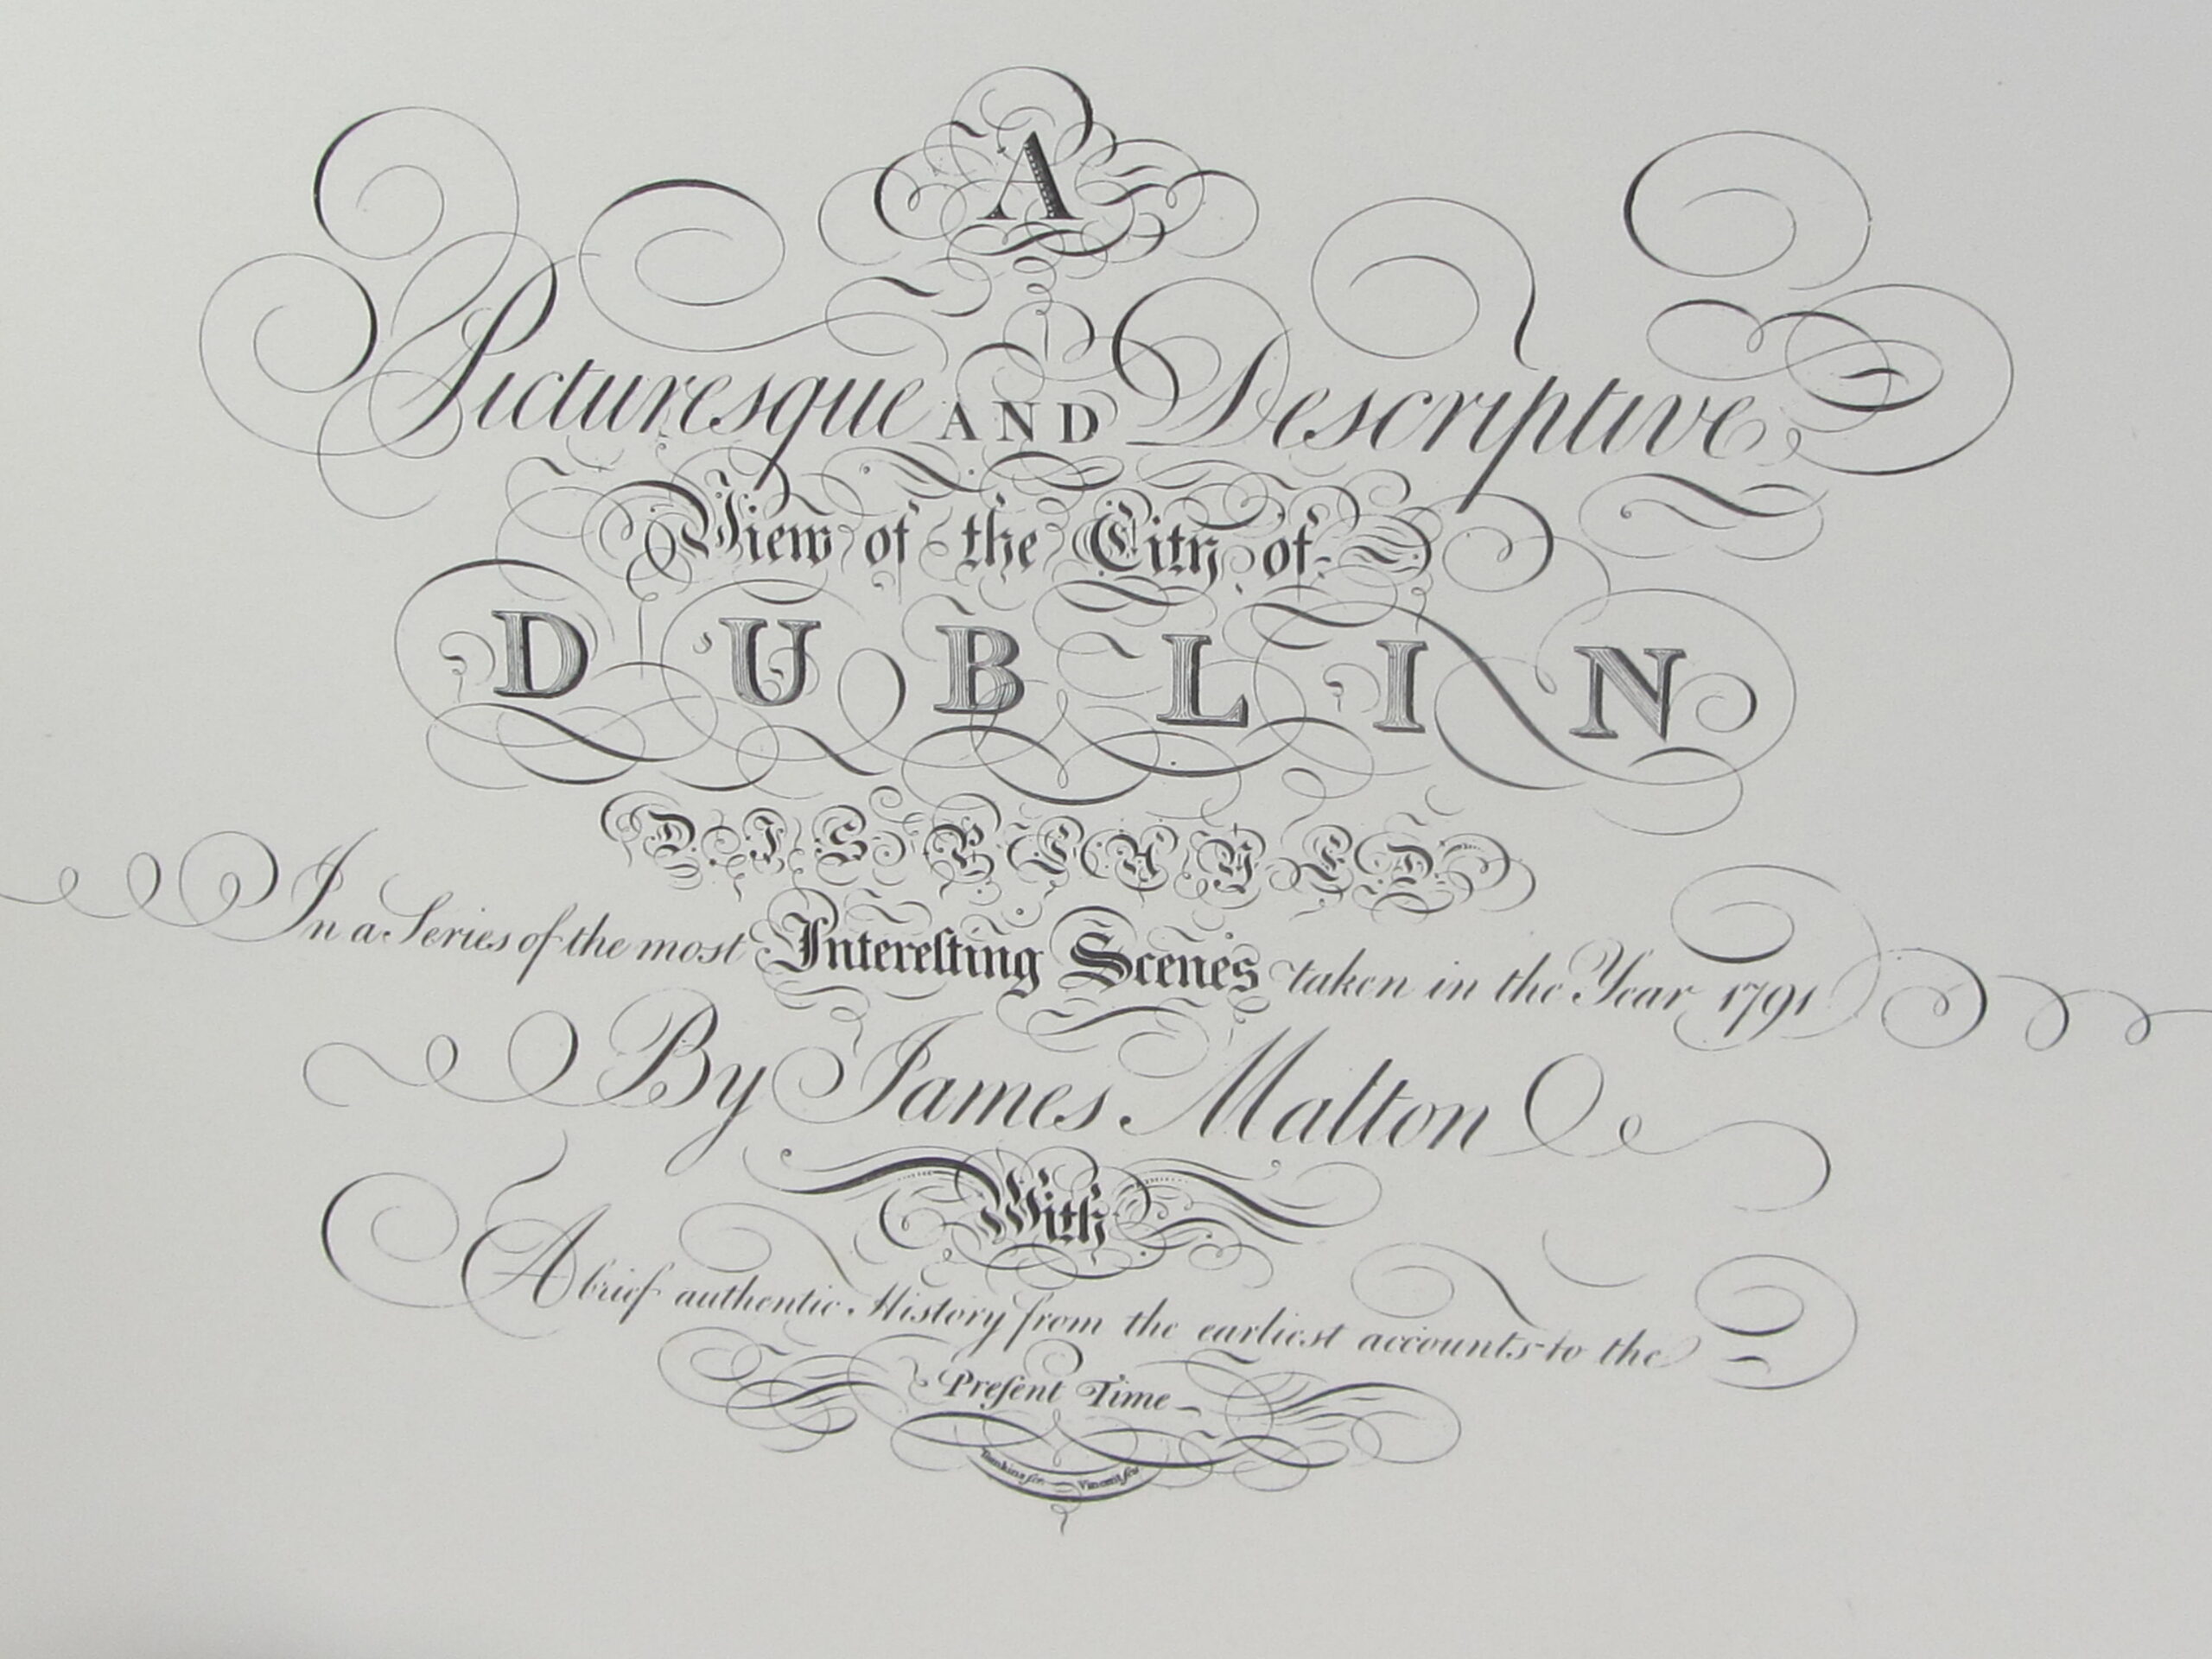 A
Picturesque AND Descriptive
View of the City of
DUBLIN
DISPLAYED
In a Series of the most Intereſting Scenes taken in the Year 1791
By James Malton
With
A brief authentic History from the earliest accounts to the
Preſent Time
Tomkins scr. Vincent sculp